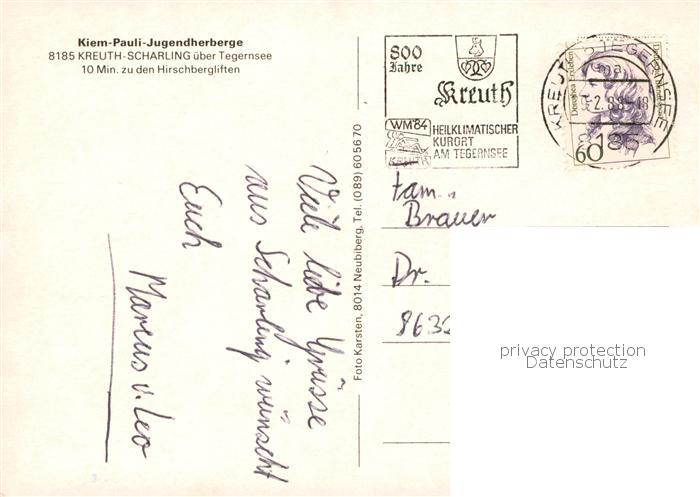 Kiem-Pauli-Jugendherberge
8185 KREUTH-SCHARLING über Tegernsee
10 Min. zu den Hirschbergliften
Viele liebe Grüsse
aus Scharling wünscht
Euch
Marcus u. Leo
Foto Karsten, 8014 Neubiberg, Tel. (089) 605670
800
Jahre
Kreuth
WM'84
KREUTH
HEILKLIMATISCHER
KURORT
AM TEGERNSEE
KREUTH TEGERNSEE
8185
Dorothea Erxleben
Deutsche Bundespost
60
Fam.
Brauer
Dr.
863
privacy protection
Datenschutz